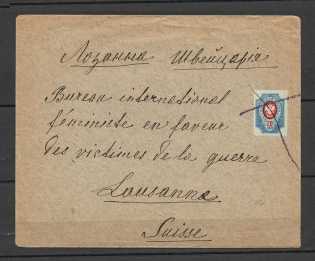 Лозанна Швейцарія
Bureau international
féministe en faveur
des victimes de la guerre
Lausanne
Suisse